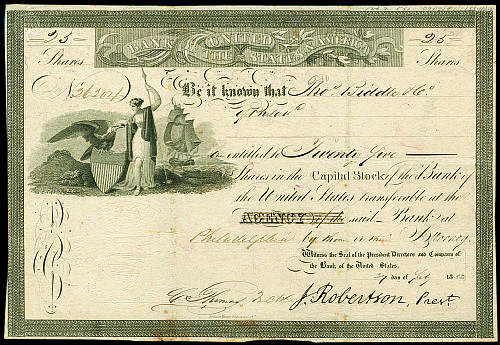 25 BANK OF THE UNITED STATES OF N. AMERICA 25
Shares Shares
Be it known that Tho.s Biddle & Co.
entitled to Twenty Five
Shares in the Capital Stock of the Bank of
the United States transferable at the
AGENCY of the said Bank at
Philadelphia by them or their Attorney
Witness the Seal of the President Directors and Company of
the Bank of the United States,
day of July 18
J. Robertson, Prest.